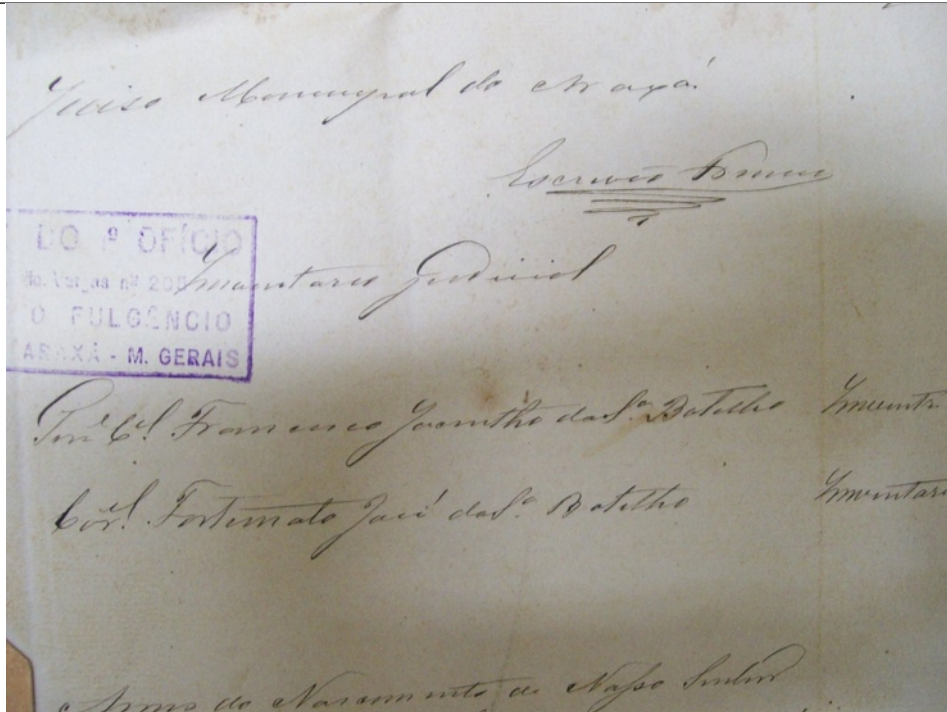 Juiso Municipal do Araxá
Escrivão
DO 1º OFÍCIO
Vargas nº 205
O FULGÊNCIO
ARAXÁ - M. GERAIS
Inventario Judicial
Tene Cel. Francisco Jacintho da Sª Botelho Inventr
Corel. Fortunato José da Sª Botelho Inventari
Anno do Nascimento de Nosso Senhor